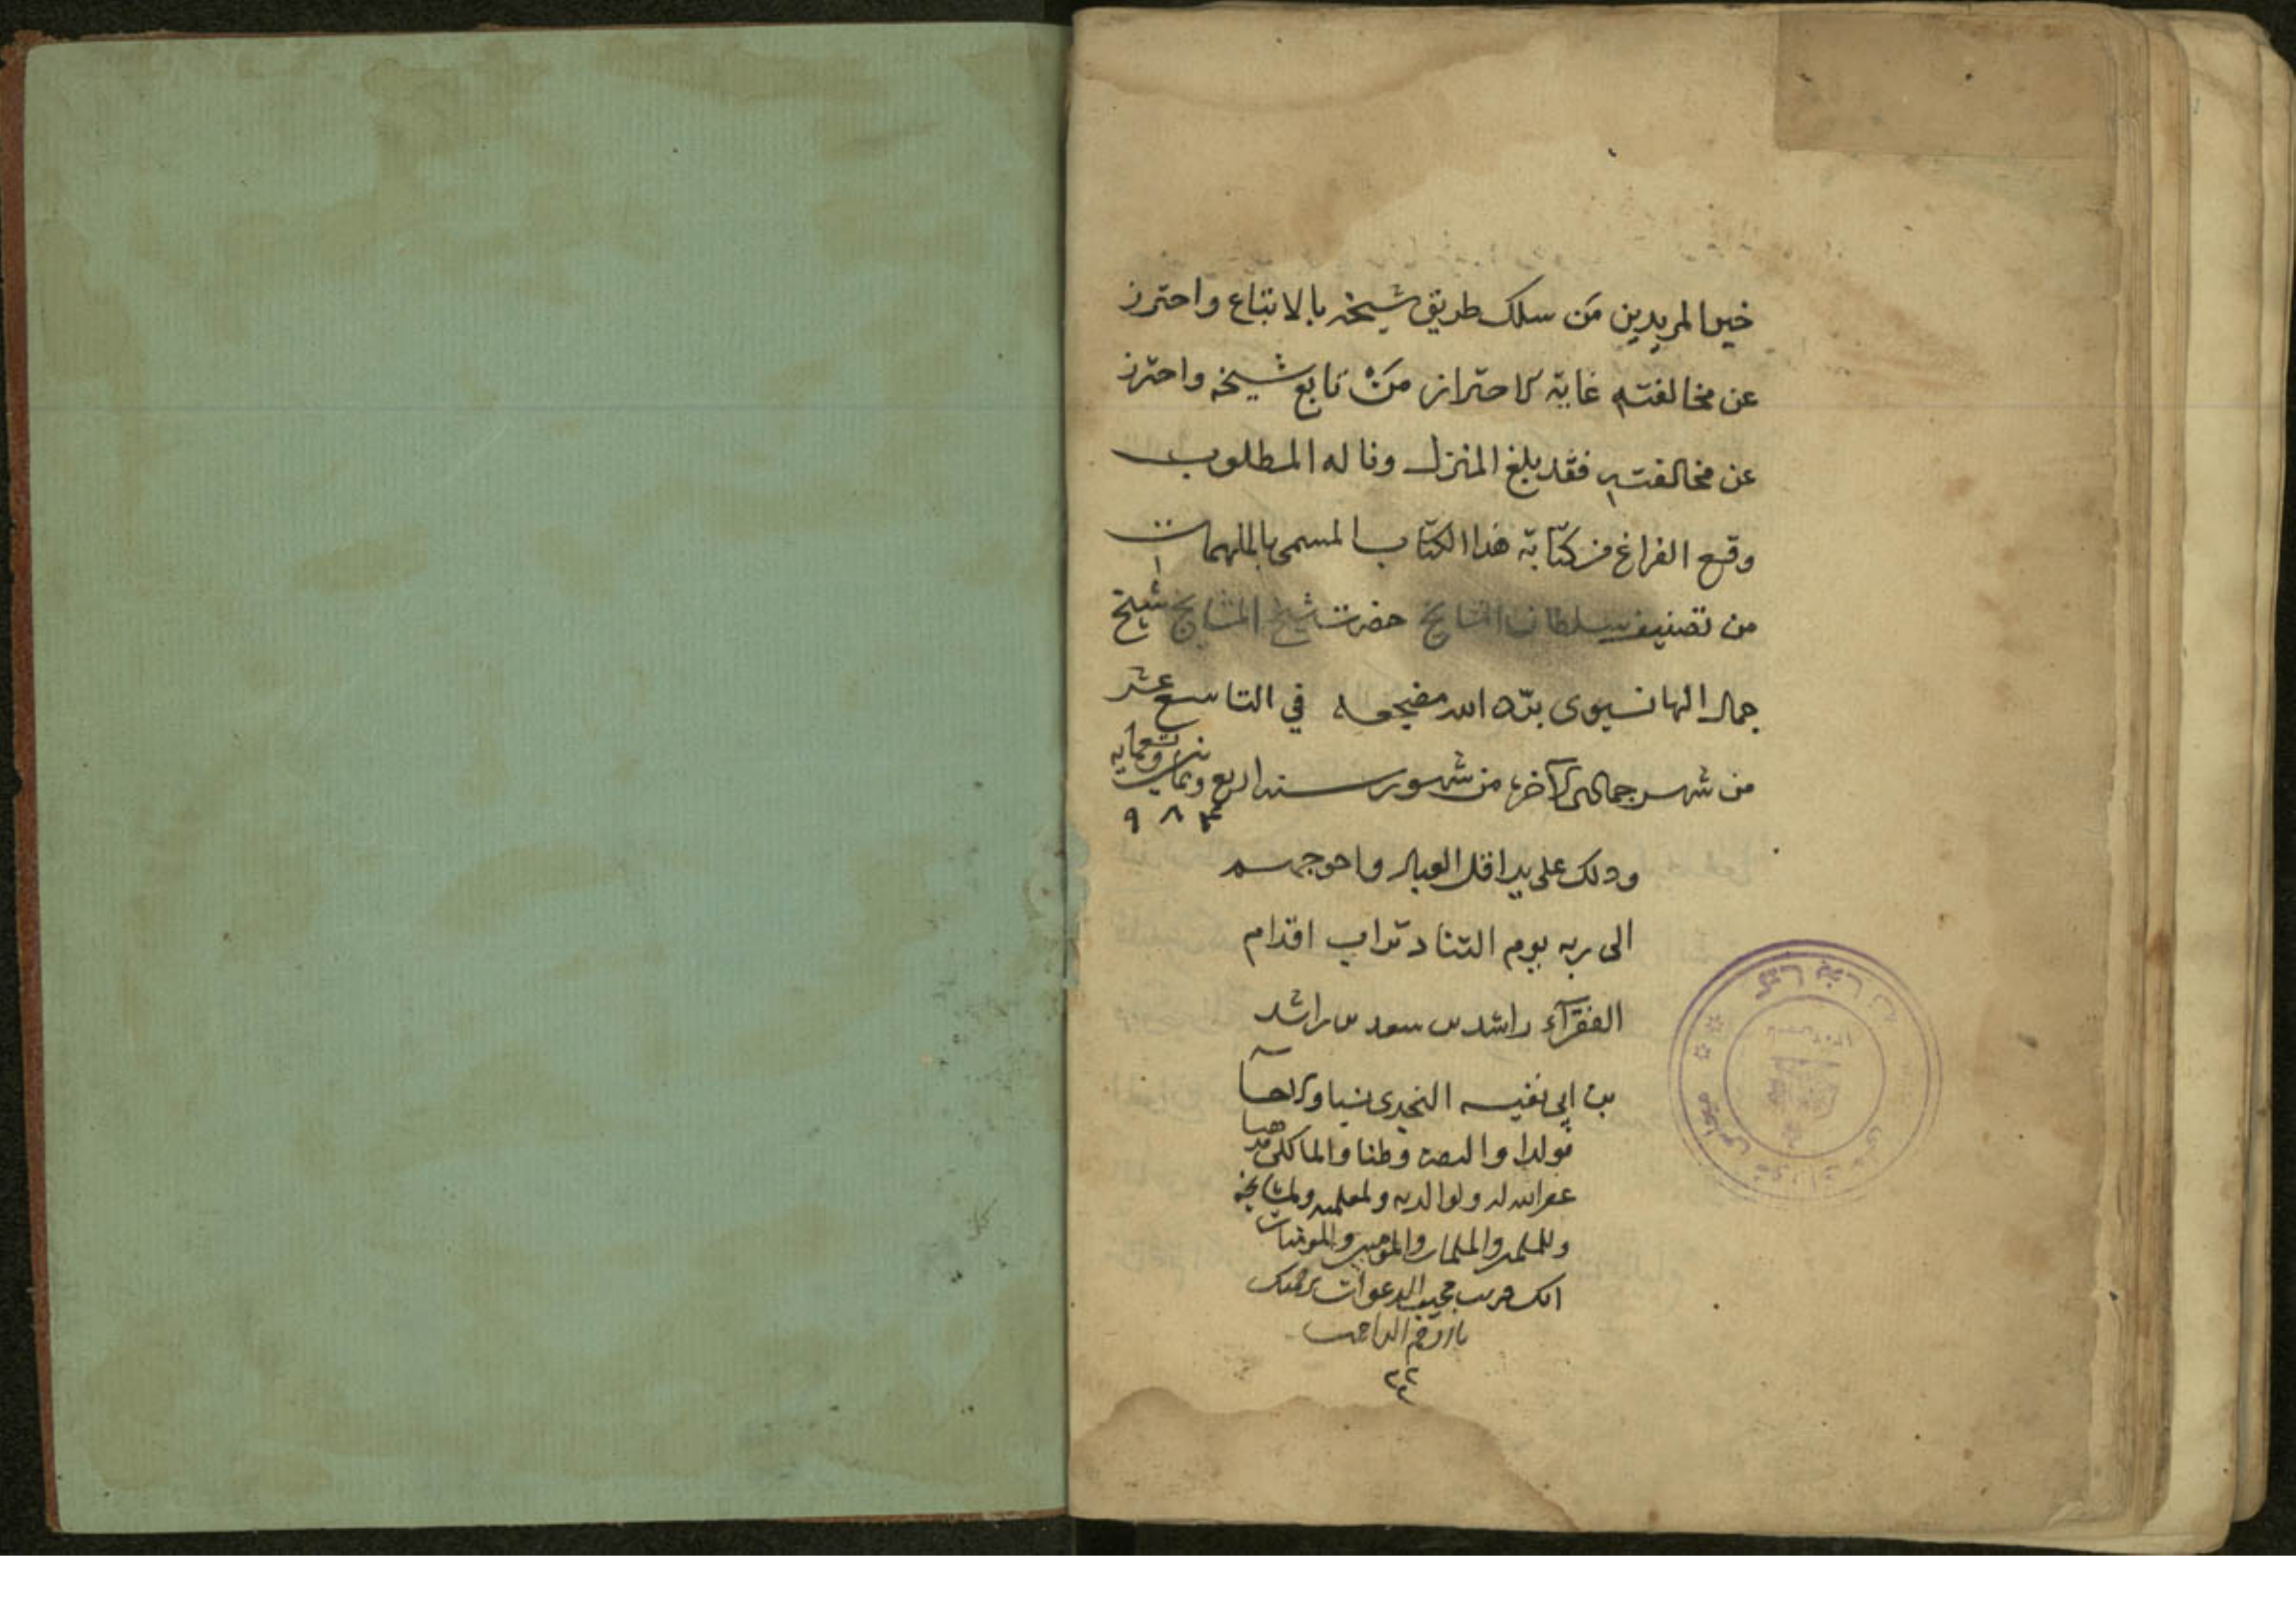 خير المريدين مَن سلك طريق شيخه بالاتباع واحترز
عن مخالفته غاية الاحتراز مَنْ تابع شيخه واحترز
عن مخالفته فقد بلغ المنزل وناله المطلوب
وقع الفراغ من كتابة هذا الكتاب المسمى بالملهمات
من تصنيف سلطان المشايخ حضرت شيخ المشايخ شيخ
جمال الهانسيوى برّد الله مضجعه في التاسع عشر
من شهر جمادى الآخر من شهور سنة اربع وثمانين وتسعمايه
٩٨۴
وذلك على يد اقل العباد واحوجهم
الى ربه يوم التناد تراب اقدام
الفقرآء راشد بن سعد بن راشد
بن ابي نفيسه النجدى نسبا والحسا
مولدا والبصره وطنا والمالكى مذهبا
غفر الله له ولوالديه ولمعلميه ولمشايخه
وللمسلمين والمسلمات والمؤمنين والمومنات
انك قريب مجيب الدعوات برحمتك
يا ارحم الراحمين